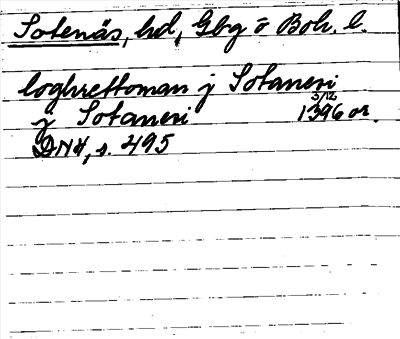 Sotenäs, hd, Gbg o Boh. l.
loghrettoman j Sotaneri
j Sotaneri 3/12 1396 or.
DN4, s. 495